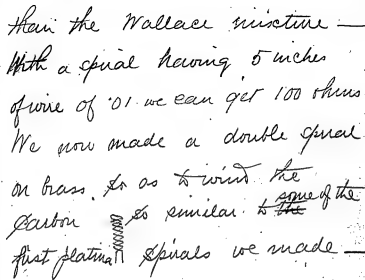 than the Wallace mixture —
With a spiral having 5 inches
of wire of .01 we can get 100 ohms
We now made a double spiral
on brass. So as to wind the
some of the
Carbon So similar to the
first platina spirals we made —